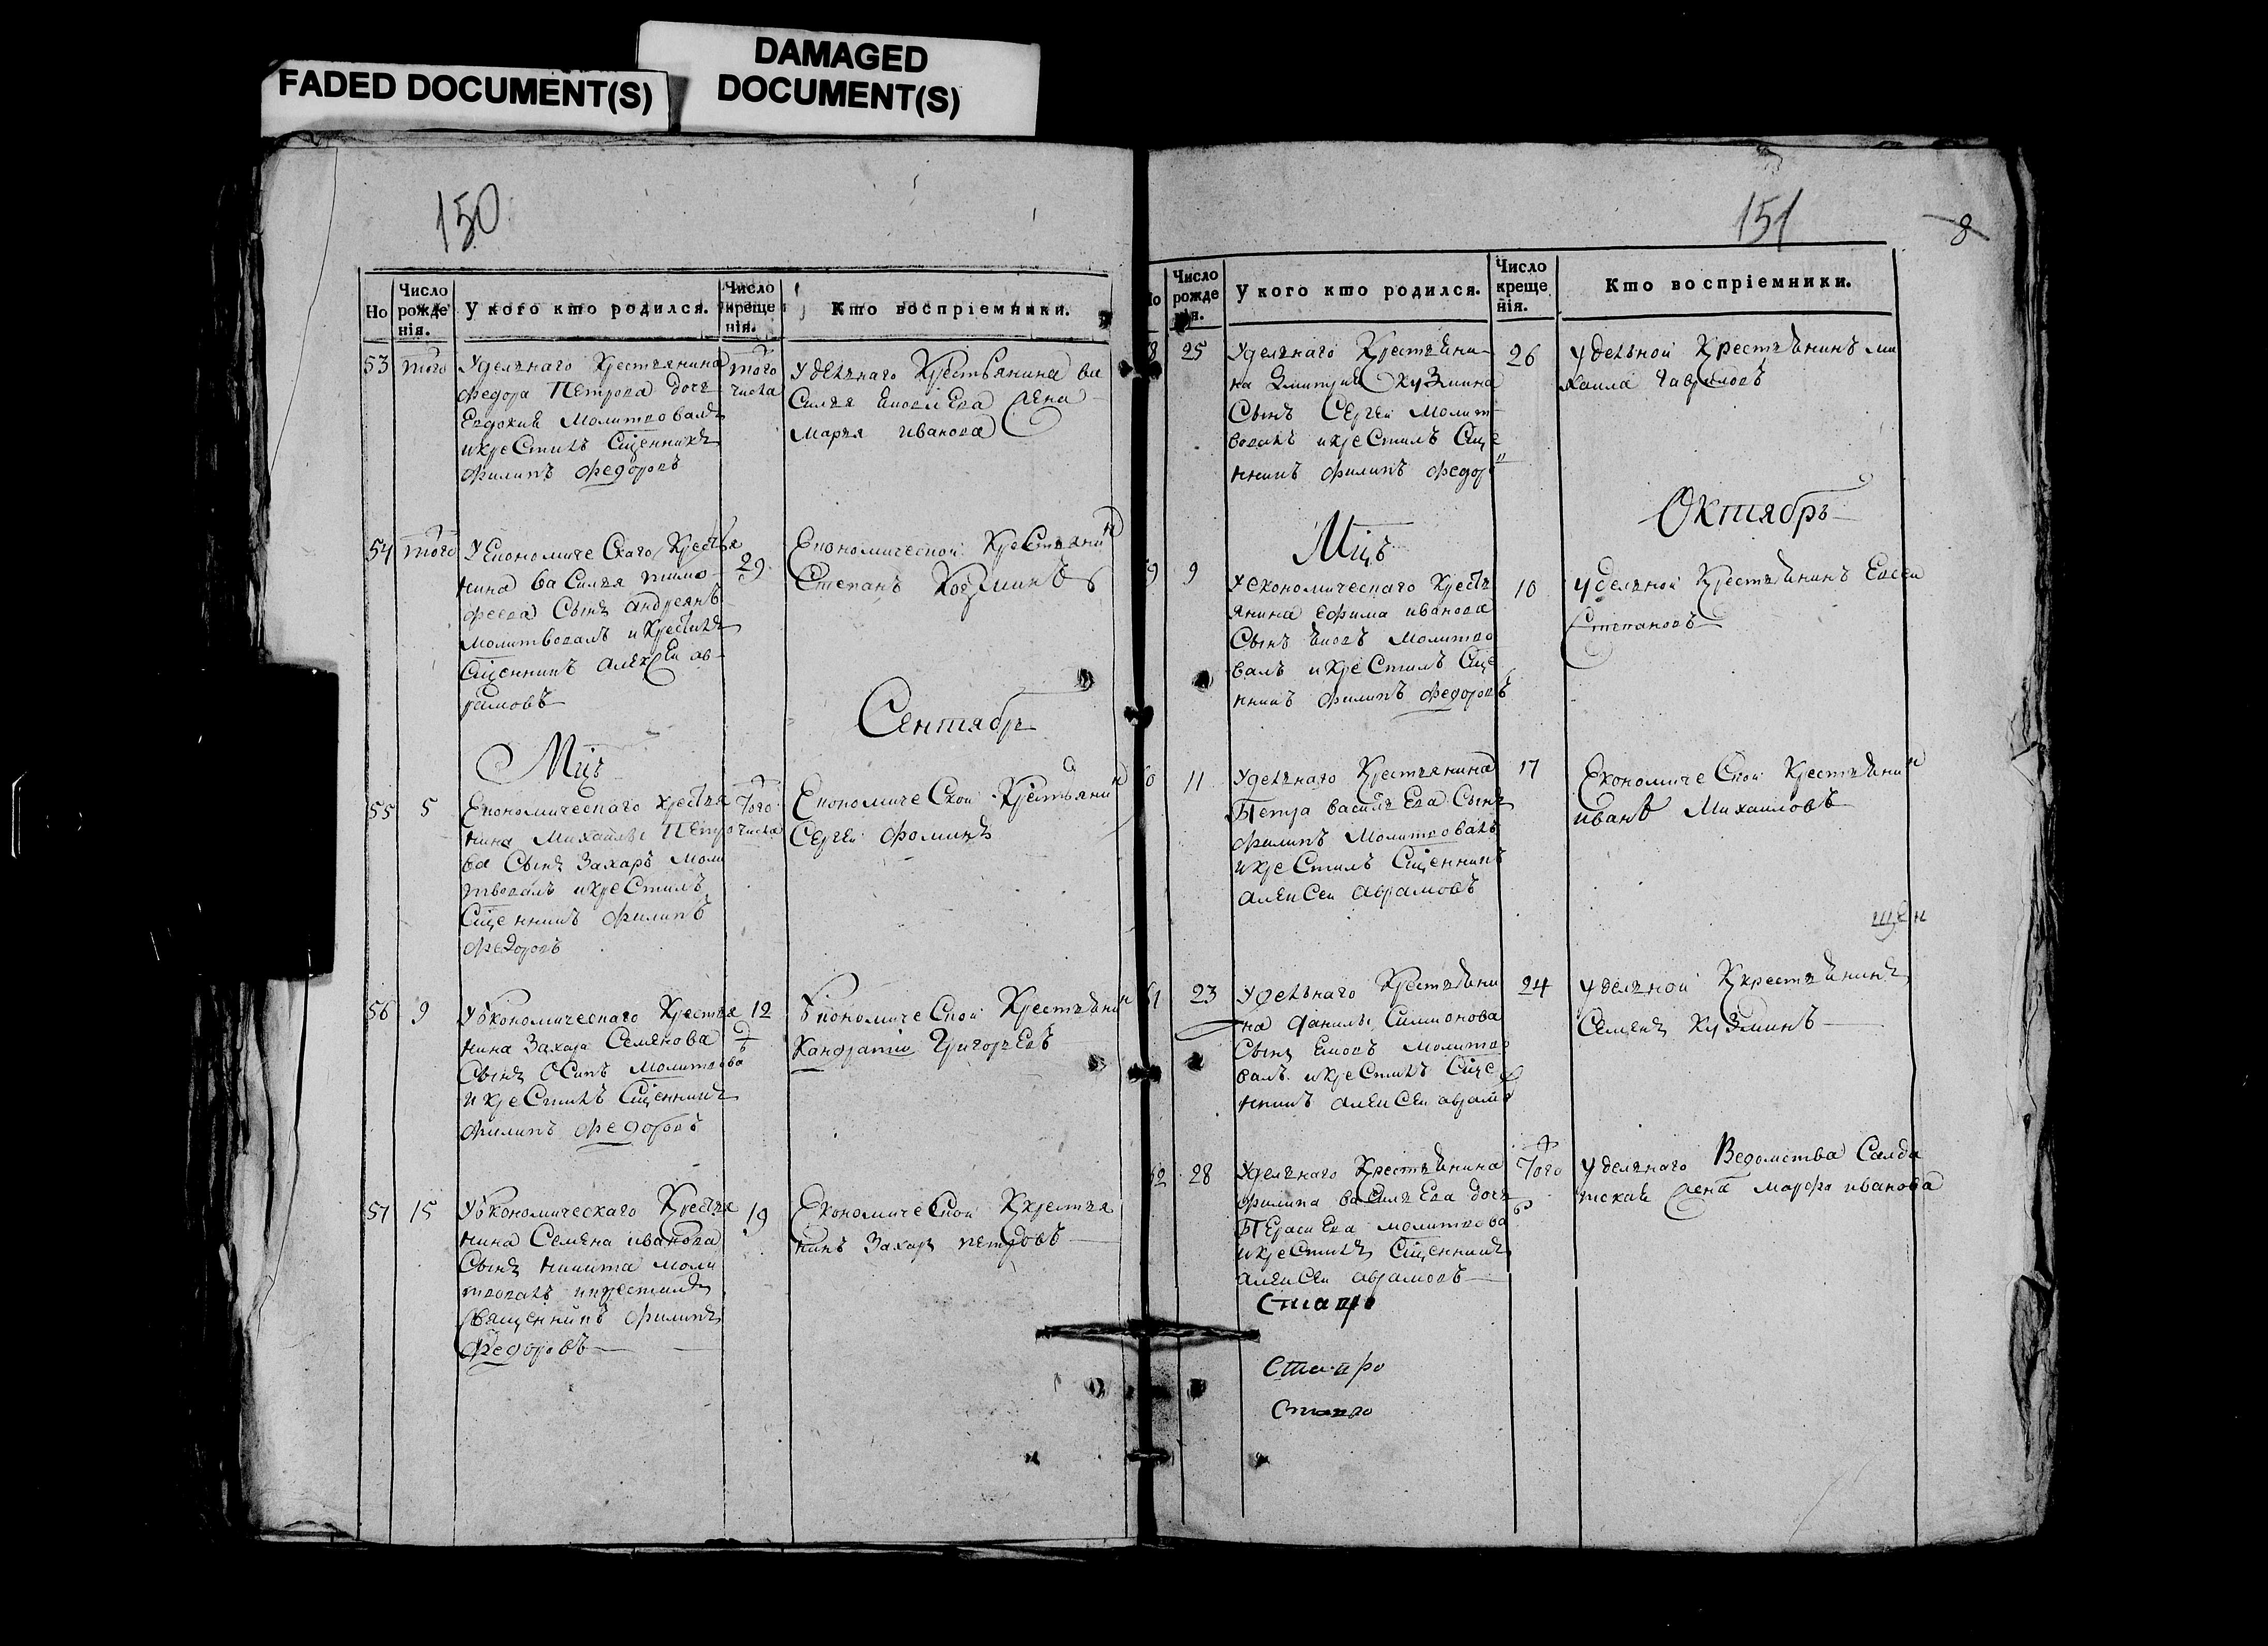 FADED DOCUMENT(S)
DAMAGED
DOCUMENT(S)
150
Но
Число рожде нія.
У кого кто родился.
Число креще нія.
Кто воспріемники.
53 того
Уделнаго Крестьянина
Федора Петрова дочь
Евдокия Молитвовалъ
и крестилъ Сщенникъ
Филипъ Федоровъ
того
числа
Уделнаго Крестьянина Ва
Силья Жена
Марья Иванова
54 того
У Економическаго Крестья
нина Василья Тимо
феева Сынъ Андреянъ
Молитвовалъ и Крестилъ
Сщенникъ Алексеи Ав
рамовъ
29
Економическои Крестьянин
Степанъ Козминъ
Мцъ Сентябрь
55 5
Економическаго Крестья
нина Михаилы Петро
ва Сынъ Захаръ Моли
твовалъ и крестилъ
Сщенникъ Филипъ
Федоровъ
Того
числа
Економическои Крестьянин
Сергеи Фоминъ
56 9
У Економическаго Крестья
нина Захара Семенова
Сынъ Осипъ Молитвова
и крестилъ Сщенникъ
Филипъ Федоровъ
12
Економическои Крестьянин
Кандратіи Григорьевъ
57 15
У Економическаго Крестья
нина Семена Иванова
Сынъ Никита Моли
твовалъ и крестилъ
Священникъ Филипъ
Федоровъ
19
Економическои Ккрестья
нинъ Захаръ Петровъ
151
8
но
Число рожде нія.
У кого кто родился.
Число креще нія.
Кто воспріемники.
8 25
Уделнаго Крестьяни
на Дмитрия Кузмина
Сынъ Сергеи Молит
вовалъ и крестилъ Сще
нникъ Филипъ Федоро
26
Уделнои Крестьянинъ Ми
хаила Гавриловъ
Мцъ Октябрь
9 9
У Економическаго Кресть
янина Ефима Иванова
Сынъ Яковъ Молитво
валъ и крестилъ Сще
нникъ Филипъ Федоровъ
10
Уделнои Крестьянинъ Евсеи
Степановъ
0 11
Уделнаго Крестьянина
Петра Васильева Сынъ
Филипъ Молитвовалъ
и крестилъ Сщенникъ
Алексеи Аврамовъ
17
Економическои Крестьянин
Иванъ Михаиловъ
61 23
Уделнаго Крестьяни
на Данилы Симионова
Сынъ Яковъ Молитво
валъ и крестилъ Сще
нникъ Алексеи Аврамо
24
Уделнои Ккрестьянинъ
Семенъ Кузминъ
62 28
Уделнаго Крестьянина
Филипа Васильева дочь
Молитвова
и крестилъ Сщенникъ
Алексеи Аврамовъ
Того
Уделнаго Ведомства Салда
тская Жена Марфа Иванова